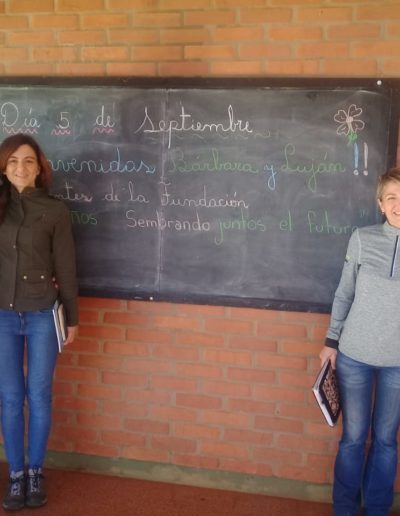 Día 5 de Septiembre
nvenidas Bárbara y Luján!!
ntes de la Fundación
ños Sembrando juntos el futuro"